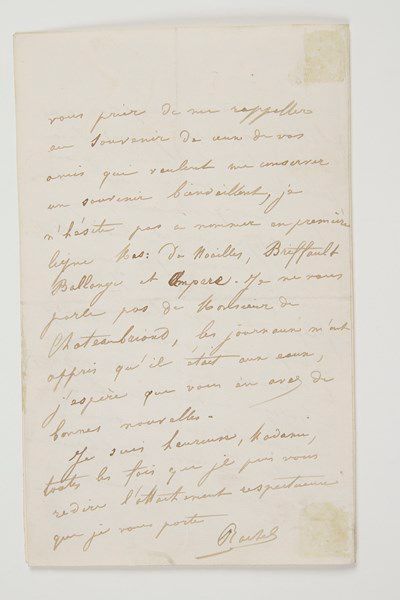 vous prier de me rappeller
au souvenir de ceux de vos
amis qui veulent me conserver
un souvenir bienveillent, je
n'hésite pas à nommer en première
ligne Mes: De Noailles, Briffault
Ballange et Ampere. Je ne vous
parle pas de Monsieur de
Chateaubriand, les journaux m'ont
appris qu'il était aux eaux,
j'espère que vous en avez de
bonnes nouvelles.
Je suis heureuse, Madame,
toutes les fois que je puis vous
redire l'attachement respectueux
que je vous porte
Rachel